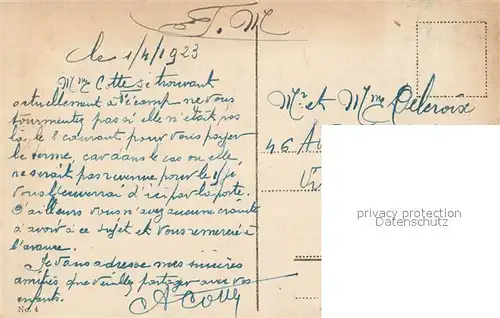 F. M
le 1/4/1923
Mme Cotte se trouvant
actuellement à Fécamp ne vous
tourmentez pas si elle n'était pas
là le 8 courant pour vous payer
le terme, car dans le cas ou elle
ne serait pas revenue pour le
vous l'enverrai d'ici par la poste.
D'ailleurs vous n'avez aucune crainte
à avoir à ce sujet et vous remercie à
l'avance.
Je vous adresse mes sincères
amitiés que veuillez partager avec vos
enfants.
A Cotte
No. 4
Mr et Mme Delcroix
46 A
privacy protection
Datenschutz